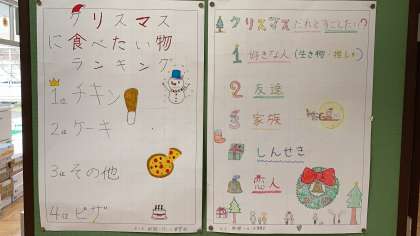 クリスマス
に食べたい物
ランキング
1位 チキン
2位 ケーキ
3位 その他
4位 ピザ
クリスマスだれとすごしたい?
1 好きな人(生き物・推し)
2 友達
3 家族
しんせき
恋人